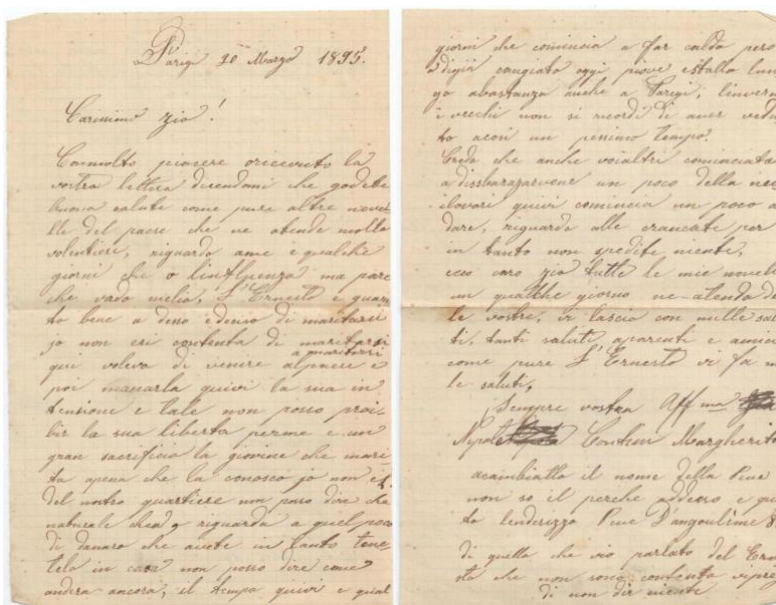 Parigi 20 Marzo 1895.
Carissimo zio!
Conmolto piacere oricevuto la
vostra lettera dicendomi che godete
buona salute come pure altre novel
lle del paese che ne atende molto
volentieri, riguardo ame e qualche
giorni che o linflpenza ma pare
che vado melio, L'Ernesto e guari
to bene a desso edecivo di maritarsi
jo non eri contenta di maritarsi
a maritarsi
qui voleva di venire alpaese e
poi manarla quivi la sua in
tensione e tale non posso proi
bir la sua liberta perme e un
gran sacrificio la giovine che mari
ta apena che la conosco jo non e
del nostro quartiere non posso dire che
naturale riguardo a quel poco
di danaro che avete in tanto tene
telo in casa non posso dire come
andera ancora, il tempo quivi e qual
giorni che comincia a far caldo pero
a digia cangiato oggi piove estalla lun
go abastanza anche a Parigi, linver
i vecchi non si ricordi di aver vedu
to acosi un pessimo tempo.
Credo che anche voialtri cominciata
a dissbarazarvene un poco della nev
ilovari quivi comincia un poco a
dare, riguardo alle crancate per
in tanto non spedite niente,
ecco caro zio tutte le mie novel
un qualche giorno ne atendo de
le vostre, vi lascio con mille salu
ti, tanti saluti aparenti e amici
come pure L'Ernesto vi fa m
le saluti,
Sempre vostra Affma
Nipote Contin Margherita
acambiatto il nome della Rue
non so il perche addesso e que
to lenderizzo Rue D'angoulême 8
di quella che vio parlato del Ern
sto che non sono contenta vipreg
di non dir niente